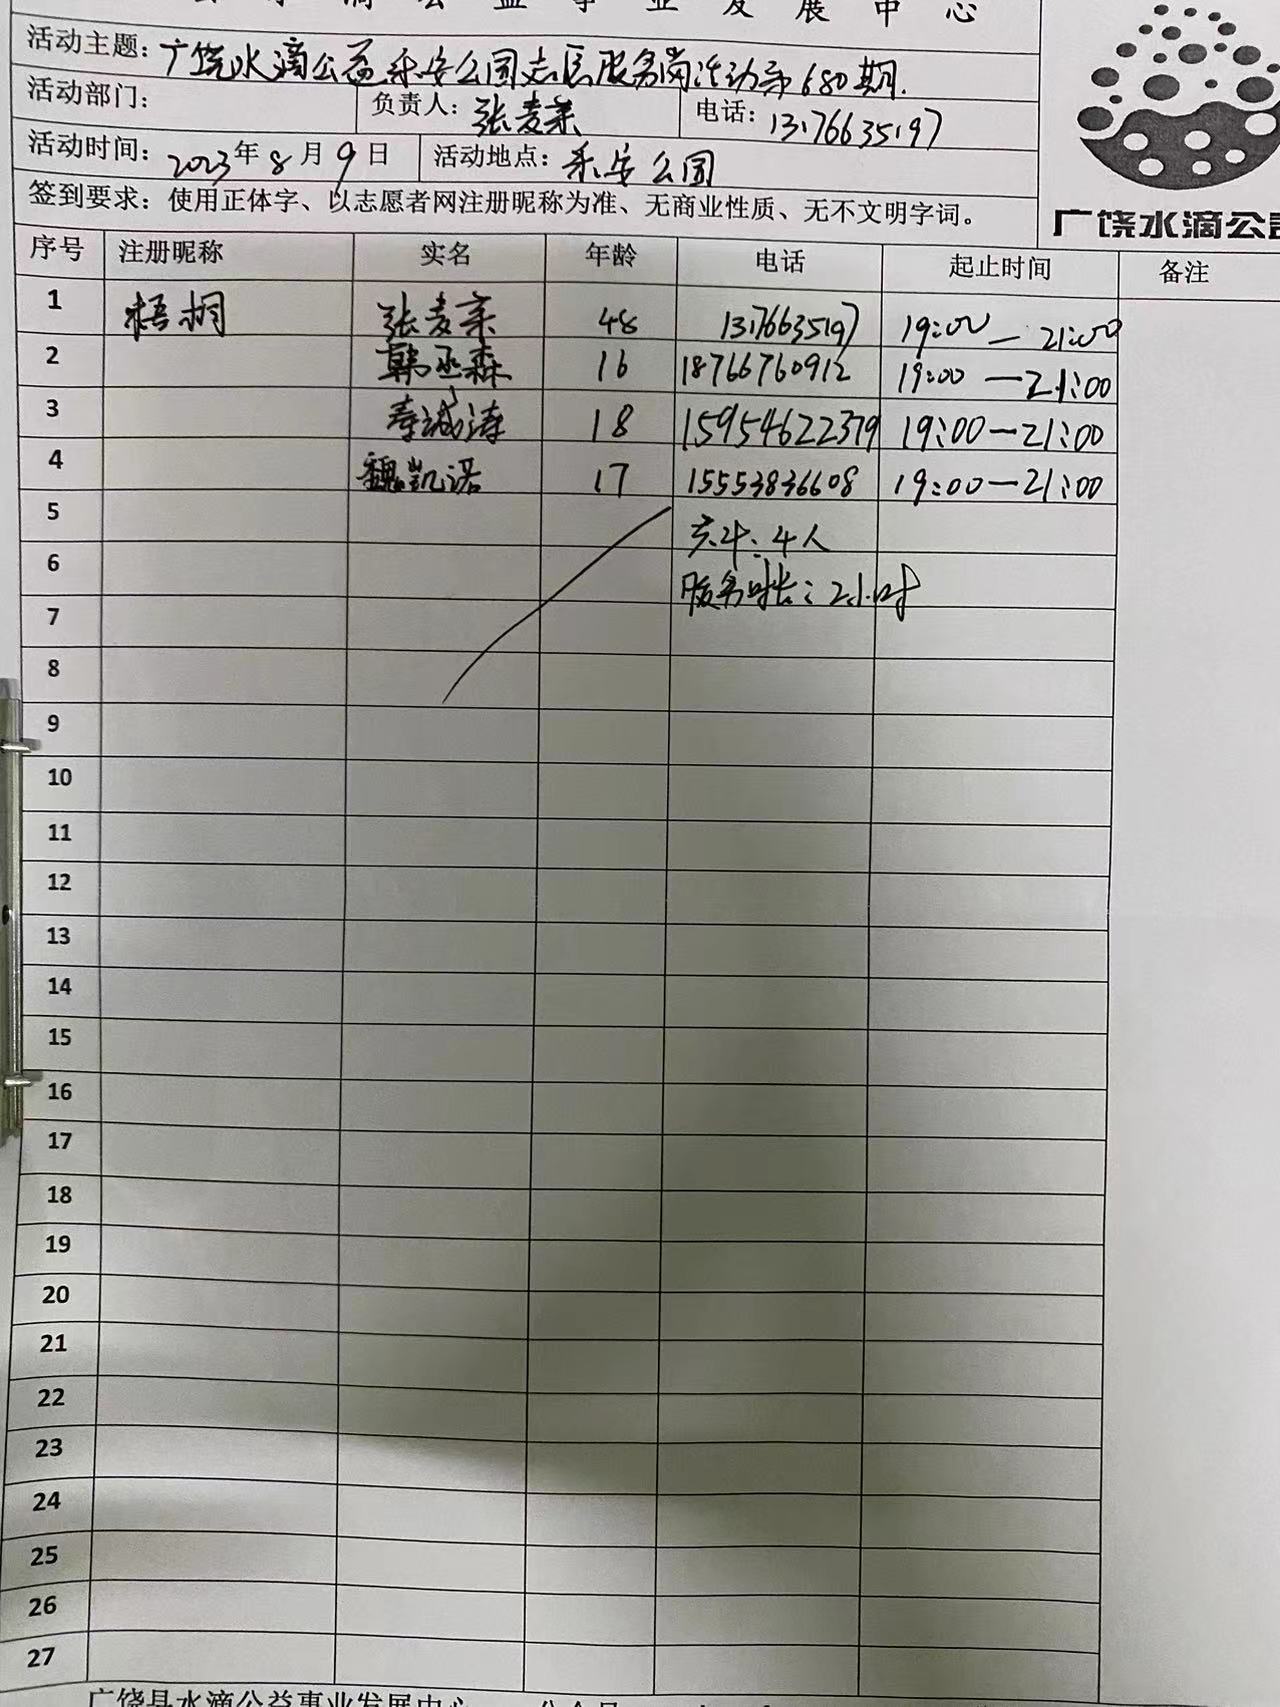 水滴公益事业发展中心
活动主题：广饶水滴公益乐安公园志愿服务岗活动第680期.
活动部门：
负责人：张麦荣
电话：13176635197
活动时间：2023年8月9日
活动地点：乐安公园
签到要求：使用正体字、以志愿者网注册昵称为准、无商业性质、无不文明字词。
广饶水滴公益
序号 注册昵称 实名 年龄 电话 起止时间 备注
1 梧桐 张麦荣 48 13176635197 19:00—21:00
2 韩丞森 16 18766760912 19:00—21:00
3 李诚涛 18 15954622379 19:00—21:00
4 魏凯诺 17 15553836608 19:00—21:00
5 共计：4人
6 服务时长：2小时
7
8
9
10
11
12
13
14
15
16
17
18
19
20
21
22
23
24
25
26
27
广饶县水滴公益事业发展中心